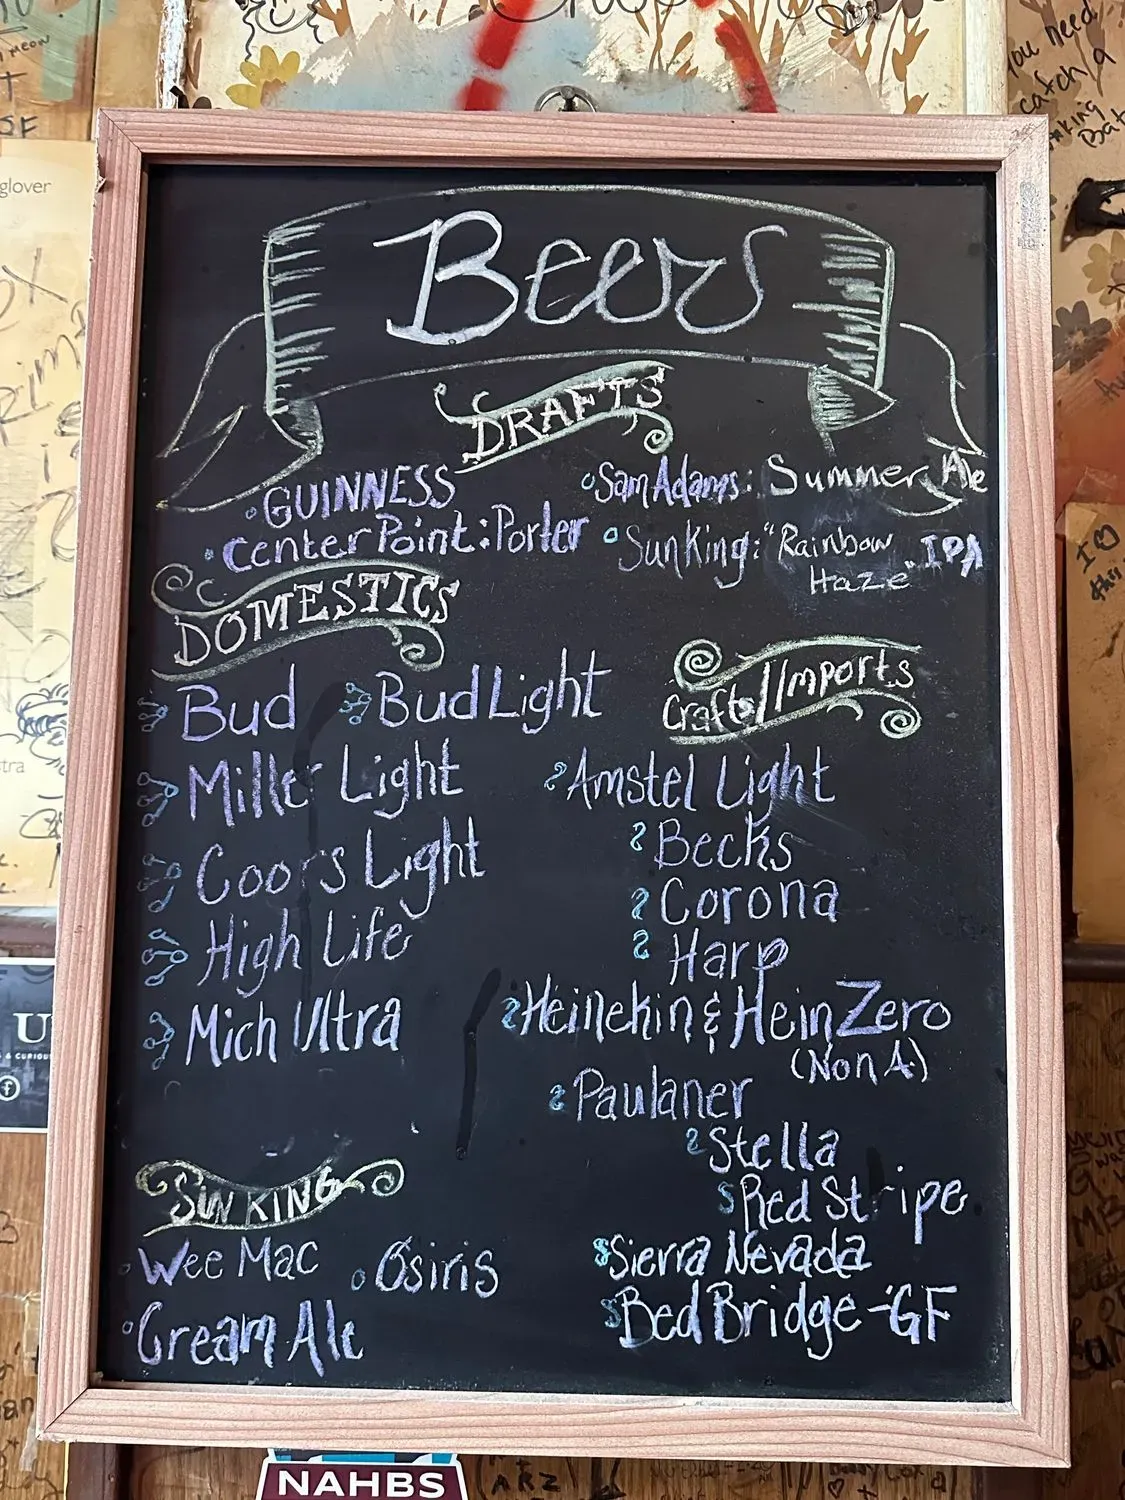 Beers
DRAFTS
GUINNESS
Center Point: Porter
Sam Adams: Summer Ale
Sun King: "Rainbow Haze" IPA
DOMESTICS
Bud
Bud Light
Miller Light
Coors Light
High Life
Mich Ultra
SUN KING
Wee Mac
Osiris
Cream Ale
Crafts/Imports
Amstel Light
Becks
Corona
Harp
Heinekin & Hein Zero
(Non A)
Paulaner
Stella
Red Stripe
Sierra Nevada
Bed Bridge - GF
NAHBS
you need
catch a
glover